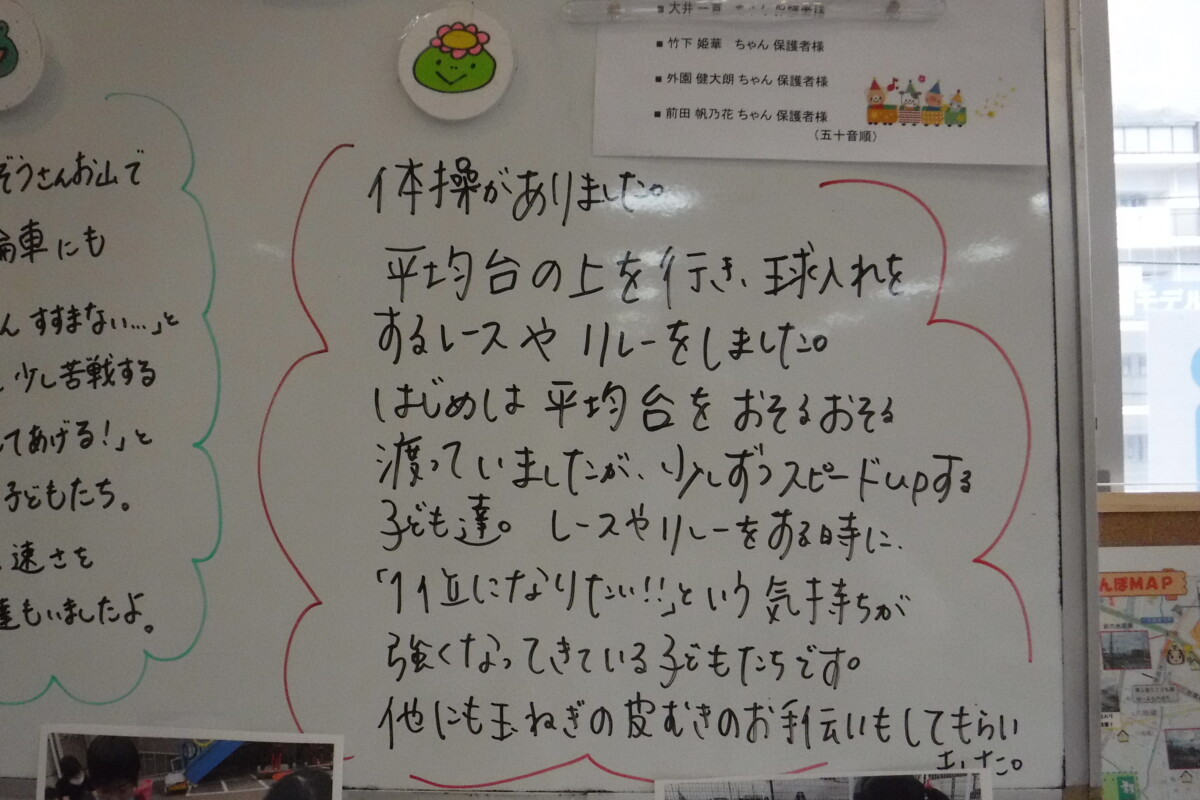 ■ 竹下 姫華 ちゃん 保護者様
■ 外園 健大朗 ちゃん 保護者様
■ 前田 帆乃花 ちゃん 保護者様
(五十音順)
ぞうさんお山で
車にも
ん すすまない…」と
少し苦戦する
てあげる!」と
子どもたち。
速さを
達もいましたよ。
体操がありました。
平均台の上を行き、球入れを
するレースや リレーをしました。
はじめは 平均台を おそるおそる
渡っていましたが、少しずつスピードupする
子ども達。 レースやリレーをある時に、
「1位になりたい!!」という気持ちが
強くなってきている子どもたちです。
他にも玉ねぎの皮むきのお手伝いもしてもらい
ました。
んぽMAP